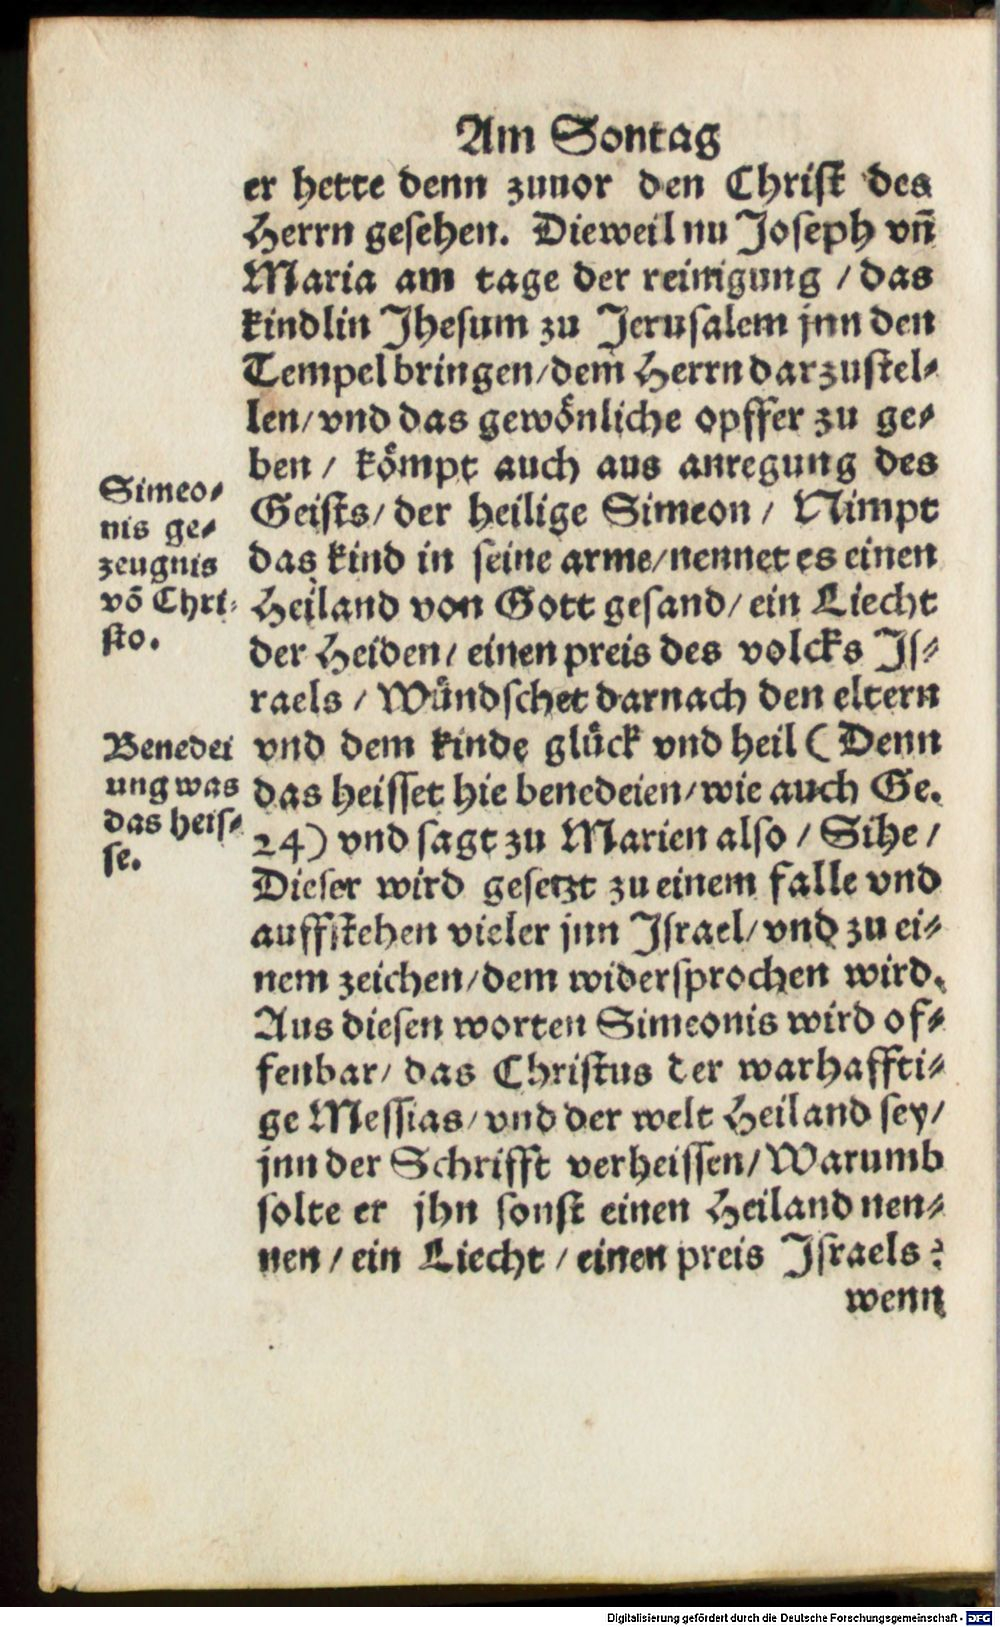 Am Sontag
er hette denn zuuor den Christ des
Herrn gesehen. Dieweil nu Joseph vñ
Maria am tage der reinigung / das
kindlin Jhesum zu Jerusalem jnn den
Tempel bringen / dem Herrn darzustel⸗
len / vnd das gewönliche opffer zu ge⸗
ben / kömpt auch aus anregung des
Geists / der heilige Simeon / Nimpt
das kind in seine arme / nennet es einen
Heiland von Gott gesand / ein Liecht
der Heiden / einen preis des volcks Js⸗
raels / Wündschet darnach den eltern
vnd dem kinde glück vnd heil ( Denn
das heisset hie benedeien / wie auch Ge.
24) vnd sagt zu Marien also / Sihe /
Dieser wird gesetzt zu einem falle vnd
auffstehen vieler jnn Jsrael / vnd zu ei⸗
nem zeichen / dem widersprochen wird.
Aus diesen worten Simeonis wird of⸗
fenbar / das Christus der warhaffti⸗
ge Messias / vnd der welt Heiland sey /
jnn der Schrifft verheissen / Warumb
solte er jhn sonst einen Heiland nen⸗
nen / ein Liecht / einen preis Jsraels?
wenn
Simeo⸗
nis ge⸗
zeugnis
võ Chri⸗
sto.
Benedei
ung was
das heis⸗
se.
Digitalisierung gefördert durch die Deutsche Forschungsgemeinschaft - DFG